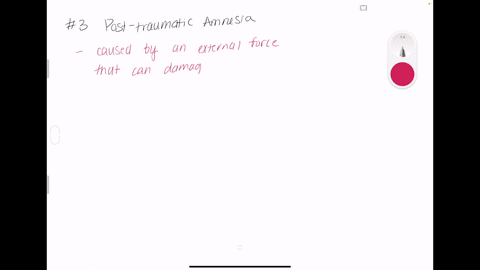 #3 Post-traumatic Amnesia
- caused by an external force
that can damag